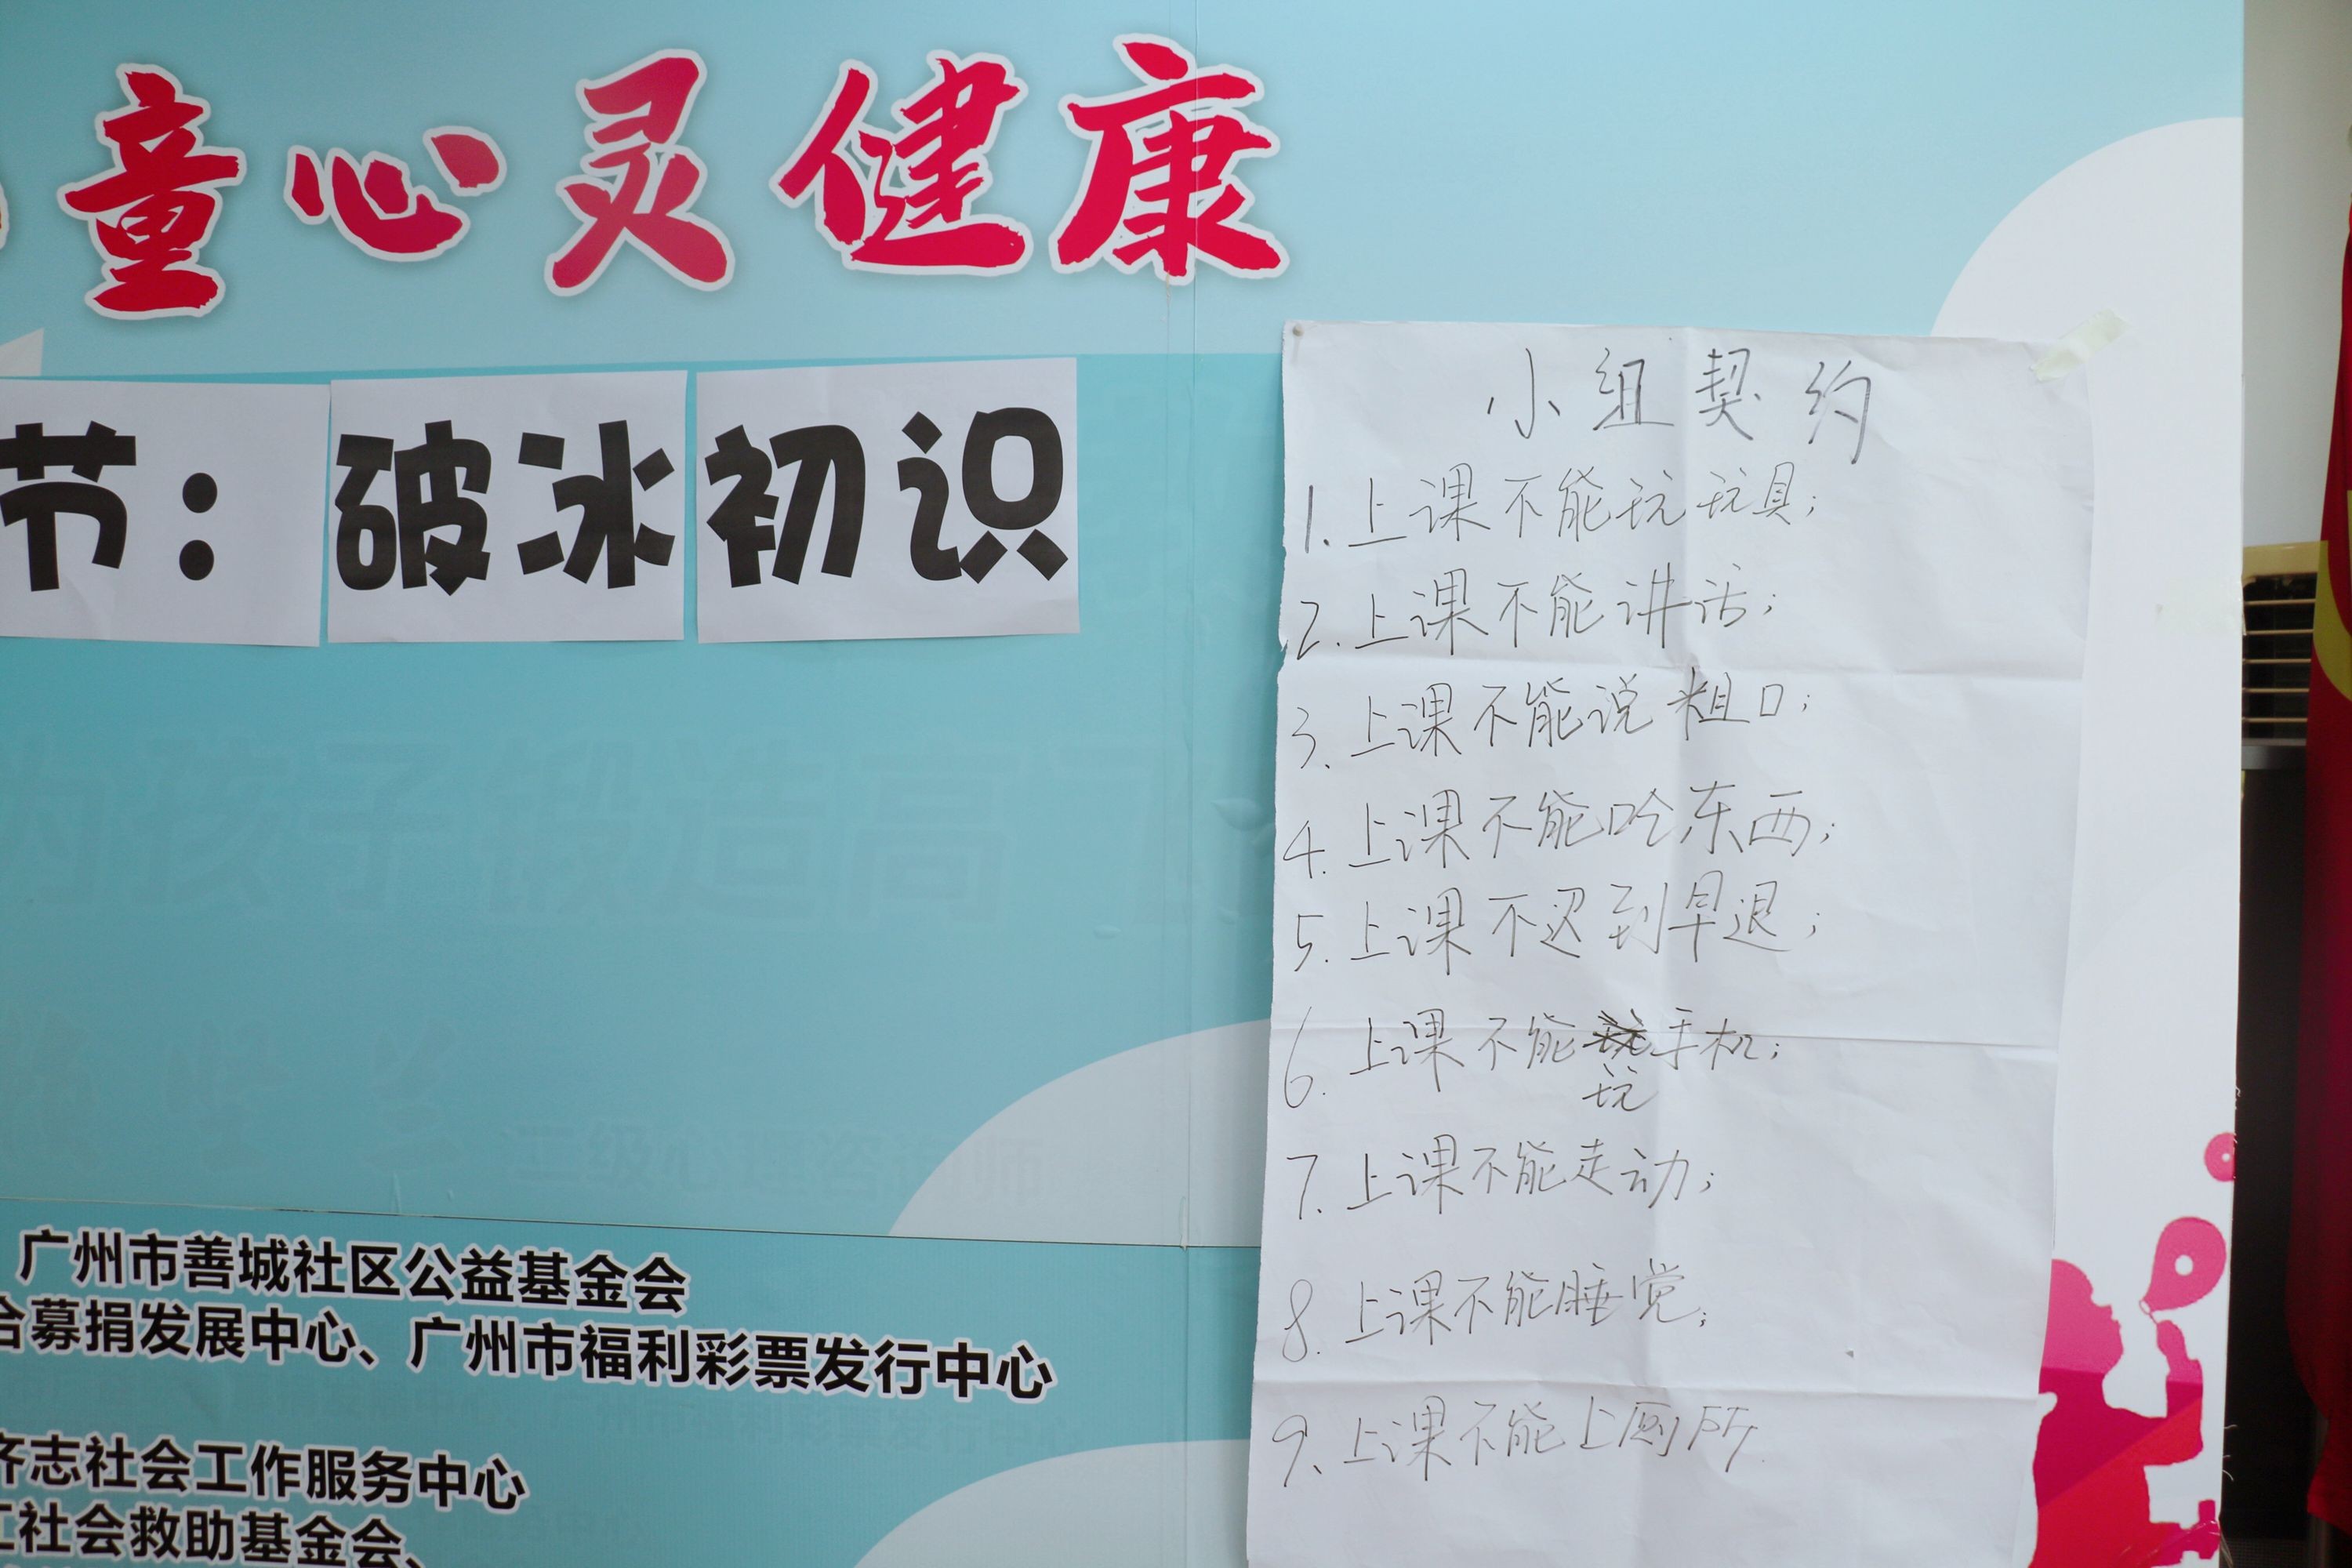 童心灵健康
节：破冰初识
小组契约
1.上课不能玩玩具；
2.上课不能讲话；
3.上课不能说粗口；
4.上课不能吃东西；
5.上课不迟到早退；
6.上课不能玩手机；
7.上课不能走动；
8.上课不能睡觉；
9、上课不能上厕所
广州市善城社区公益基金会
合募捐发展中心、广州市福利彩票发行中心
齐志社会工作服务中心
社会救助基金会、